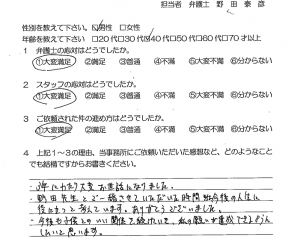 担当者 弁護士 野田泰彦
性別を教えて下さい。☑男性 □女性
年齢を教えて下さい □20代□30代☑40代□50代□60代□70才以上
1 弁護士の応対はどうでしたか。
①大変満足 ②満足 ③普通 ④不満 ⑤大変不満 ⑥分からない
2 スタッフの応対はどうでしたか。
①大変満足 ②満足 ③普通 ④不満 ⑤大変不満 ⑥分からない
3 ご依頼された件の進め方はどうでしたか。
①大変満足 ②満足 ③普通 ④不満 ⑤大変不満 ⑥分からない
4 上記1~3の理由、当事務所にご依頼いただいた感想など、どのようなこと
でも結構ですからお書きください。
3年にわたり大変お世話になりました。
野田先生とご一緒させていただいた時間が今後の人生に
役に立つと考えています。ありがとうございました。
今後も子供とのいい関係を続けていき、私の願いが達成できるよう
したいと思います。